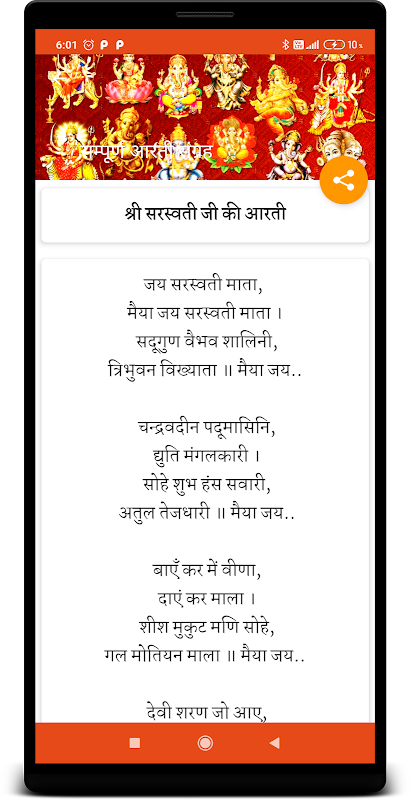 6:01
10%
सम्पूर्ण आरती संग्रह
श्री सरस्वती जी की आरती
जय सरस्वती माता,
मैया जय सरस्वती माता ।
सदूगुण वैभव शालिनी,
त्रिभुवन विख्याता ॥ मैया जय..
चन्द्रवदीन पदूमासिनि,
द्युति मंगलकारी ।
सोहे शुभ हंस सवारी,
अतुल तेजधारी ॥ मैया जय..
बाएँ कर में वीणा,
दाएं कर माला ।
शीश मुकुट मणि सोहे,
गल मोतियन माला ॥ मैया जय..
देवी शरण जो आए,